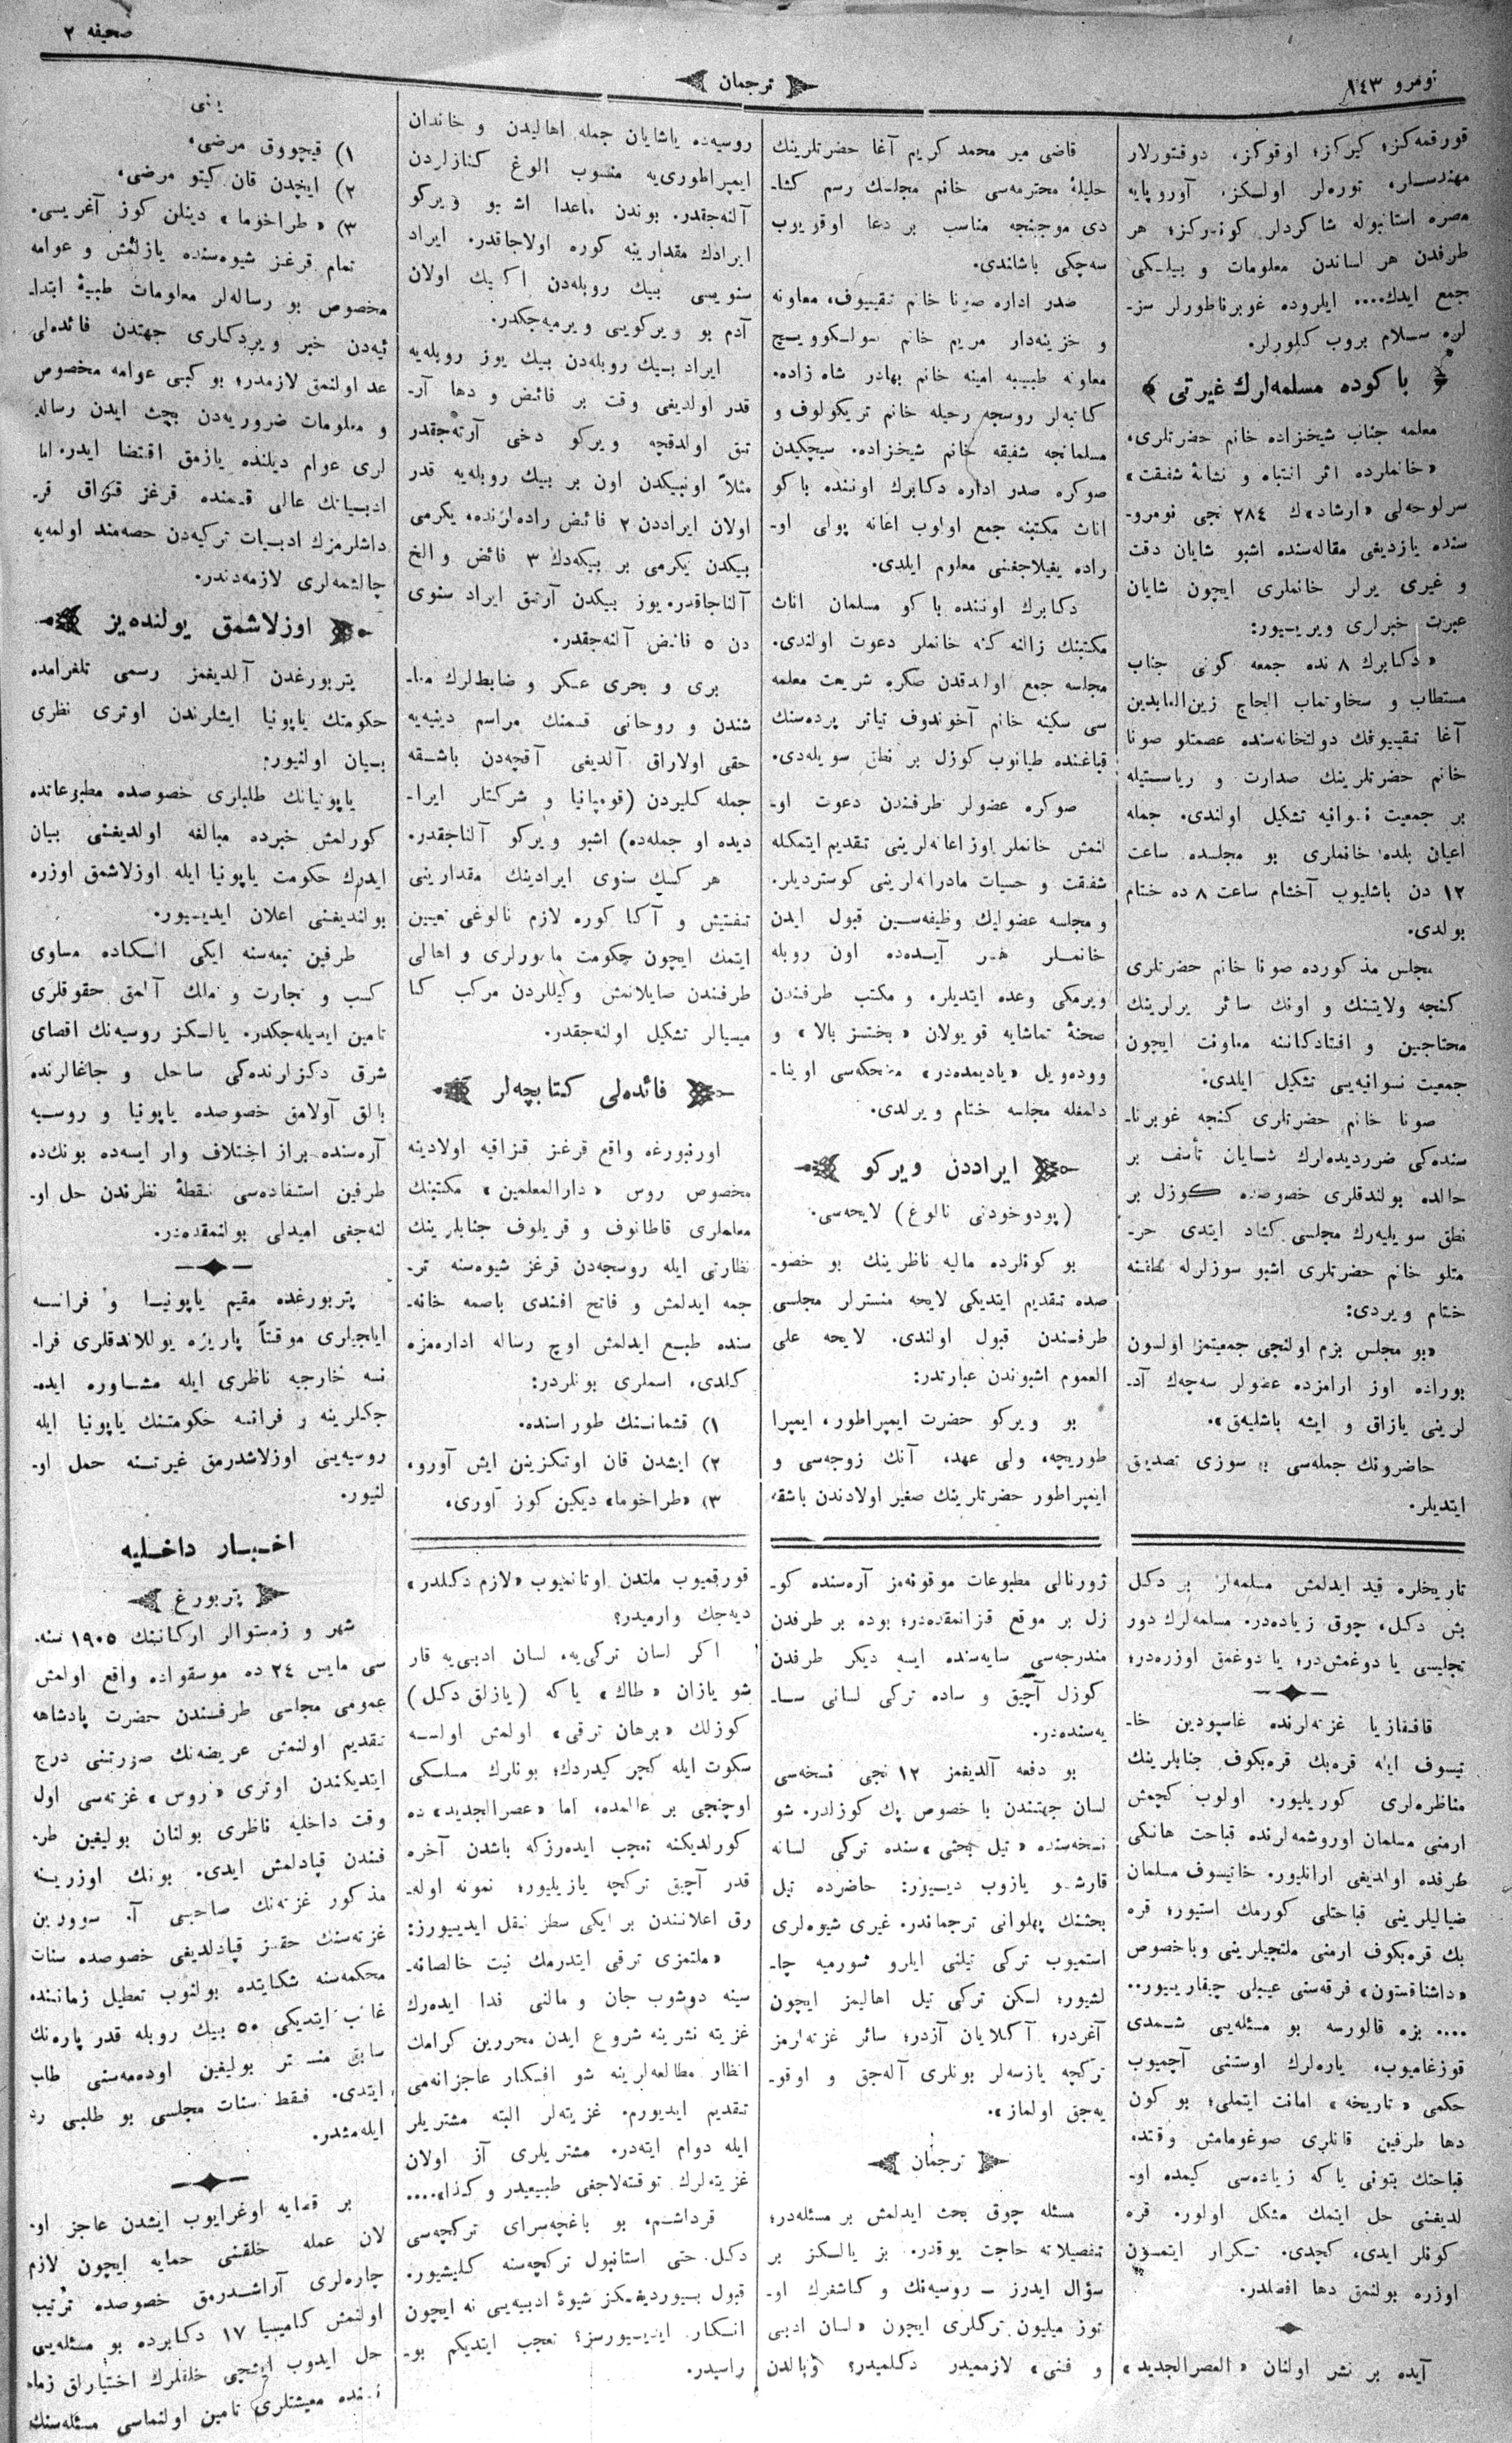 صحیفه ٢
ترجمان
نومرو ١٤٣
قورقمه‌كز؛ كیركز؛ اوقوكز، دوقتورلار
مهندسلر، توره‌لر اولكز، آوروپایه
مصره استانبوله شاكردلر كوندركز؛ هر
طرفدن هر لساندن معلومات و بیلكی
جمع ایدك.... ایلروده غوبرناطورلر سز-
لره سلام بروب كلورلر.
باكوده مسلمه‌لرك غیرتی
معلمه جناب شیخزاده خانم حضرتلری،
«خانملرده اثر انتباه و نشانهٔ شفقت»
سرلوحه‌لی «ارشاد»ك ٢٨٤ نجی نومرو-
سنده یازدیغی مقاله‌سنده اشبو شایان دقت
و غیری یرلر خانملری ایچون شایان
عبرت خبرلری ویریور:
«دكابرك ٨ نده جمعه كونی جناب
مستطاب و سخاوتماب الحاج زین‌العابدین
آغا تقییوفك دولتخانه‌سنده عصمتلو صونا
خانم حضرتلرینك صدارت و ریاستیله
بر جمعیت نسوانیه تشكیل اولندی. جمله
اعیان بلده خانملری بو مجلسده ساعت
١٢ دن باشلیوب آخشام ساعت ٨ ده ختام
بولدی.
مجلس مذكورده صونا خانم حضرتلری
كنجه ولایتنك و اونك سائر یرلرینك
محتاجین و افتادكاننه معاونت ایچون
جمعیت نسوانیه‌یی تشكیل ایلدی.
صونا خانم حضرتلری كنجه غوبرنا-
سنده‌كی ضرردیده‌لرك شایان تأسف بر
حالده بولندقلری خصوصده كوزل بر
نطق سویلیه‌رك مجلسی كشاد ایتدی حر-
متلو خانم حضرتلری اشبو سوزلرله نطقنه
ختام ویردی:
«بو مجلس بزم اولنجی جمعیتمز اولسون
بوراده اوز ارامزده عضولر سه‌چه‌ك آد-
لرینی یازاق و ایشه باشلیه‌ق».
حاضرونك جمله‌سی بو سوزی تصدیق
ایتدیلر.
قاضی میر محمد كریم آغا حضرتلرینك
حلیلهٔ محترمه‌سی خانم مجلسك رسم كشا-
دی موجبنجه مناسب بر دعا اوقویوب
سه‌چكی باشلندی.
صدر اداره صونا خانم تقییوف، معاونه
و خزینه‌دار مریم خانم سولكوویچ
معاونه طبیبه امینه خانم بهادر شاه زاده.
كاتبه‌لر روسجه رحیله خانم تریكولوف و
مسلمانجه شفیقه خانم شیخزاده. سیچكیدن
صوكره صدر اداره دكابرك اوننده باكو
اناث مكتبنه جمع اولوب اعانه پولی او-
راده یغیلاجغنی معلوم ایلدی.
دكابرك اوننده باكو مسلمان اناث
مكتبنك زالنه كنه خانملر دعوت اولندی.
مجلسه جمع اولدقدن صكره شریعت معلمه
سی سكینه خانم آخوندوف تیاتر پرده‌سنك
قباغنده طیانوب كوزل بر نطق سویله‌دی.
صوكره عضولر طرفندن دعوت او-
لنمش خانملر اوز اعانه‌لرینی تقدیم ایتمكله
شفقت و حسیات مادرانه‌لرینی كوستردیلر.
و مجلسه عضولیك وظیفه‌سین قبول ایدن
خانملر هر آیده‌ده اون روبله
ویرمكی وعده ایتدیلر. و مكتب طرفندن
صحنهٔ تماشایه قویولان «بختسز بالا» و
ووده‌ویل «یادیمده‌در» مضحكه‌سی اوینا-
دلمغله مجلسه ختام ویرلدی.
ایراددن ویركو
(پودوخودنی نالوغ) لایحه‌سی.
بو كونلرده مالیه ناظرینك بو خصو-
صده تقدیم ایتدیكی لایحه منسترلر مجلسی
طرفندن قبول اولندی. لایحه علی
العموم اشبوندن عبارتدر:
بو ویركو حضرت ایمپراطور، ایمپرا
طوریچه، ولی عهد، آنك زوجه‌سی و
ایمپراطور حضرتلرینك صغیر اولادندن باشقه
روسیه‌ده یاشایان جمله اهالیدن و خاندان
ایمپراطوری‌یه منسوب الوغ كنازلردن
آلنه‌جقدر. بوندن ماعدا اشبو ویركو
ایرادك مقدارینه كوره اولاجاقدر. ایراد
سنویسی بیك روبله‌دن اكسیك اولان
آدم بو ویركویی ویرمیه‌جكدر.
ایراد بیك روبله‌دن بیك یوز روبله‌یه
قدر اولدیغی وقت بر فائض و دها آر-
تق اولدقچه ویركو دخی آرته‌جقدر
مثلاً اونبیكدن اون بر بیك روبله‌یه قدر
اولان ایراددن ٢ فائض راده‌لرنده، یكرمی
بیكدن یكرمی بر بیكه‌دك ٣ فائض و الخ
آلناجاقدر. یوز بیكدن آرتق ایراد سنوی
دن ٥ فائض آلنه‌جقدر.
بری و بحری عسكر و ضابطلرك معا-
شندن و روحانی قسمنك مراسم دینیه‌یه
حقی اولاراق آلدیغی آقچه‌دن باشقه
جمله كلیردن (قومپانیا و شركتلر ایرا-
دیده او جمله‌ده) اشبو ویركو آلناجقدر.
هر كسك سنوی ایرادینك مقدارینی
تفتیش و آكا كوره لازم نالوغی تعیین
ایتمك ایچون حكومت مامورلری و اهالی
طرفندن صایلانمش وكیللردن مركب كا
میسیالر تشكیل اولنه‌جقدر.
فائده‌لی كتابچه‌لر
اورنبورغه واقع قرغز قزاقیه اولادینه
مخصوص روس «دارالمعلمین» مكتبنك
معلملری قاطانوف و قریلوف جنابلرینك
نظارتی ایله روسجه‌دن قرغز شیوه‌سنه تر-
جمه ایدلمش و فاتح افندی باصمه خانه-
سنده طبع ایدلمش اوچ رساله اداره‌مزه
كلدی، اسملری بونلردر:
١) قشمانـنك طوراسنده.
٢) ایشدن قان اوتكزینن ایش آورو،
٣) «طراخوما» دیكین كوز آوری،
یعنی
١) قیچووق مرضی،
٢) ایچدن قان كیتو مرضی،
٣) «طراخوما» دینلن كوز آغریسی.
تمام قرغز شیوه‌سنده یازلمش و عوامه
مخصوص بو رساله‌لر معلومات طبیهٔ ابتدا-
ئیه‌دن خبر ویردكلری جهتدن فائده‌لی
عد اولنمق لازمدر؛ بو كبی عوامه مخصوص
و معلومات ضروریه‌دن بحث ایدن رساله
لری عوام دیلنده یازمق اقتضا ایدر. اما
ادبیاتك عالی قسمنده قرغز قزاق قر-
داشلرمزك ادبیات تركیه‌دن حصه‌مند اولمه‌یه
چالشمه‌لری لازمه‌دندر.
اوزلاشمق یولنده‌یز
پتربورغدن آلدیغمز رسمی تلغرامده
حكومتك یاپونیا ایشلرندن اوتری نظری
بیان اولنیور.
یاپونیانك طلبلری خصوصده مطبوعاتده
كورلمش خبرده مبالغه اولدیغنی بیان
ایدرك حكومت یاپونیا ایله اوزلاشمق اوزره
بولندیغنی اعلان ایدیور.
طرفین تبعه‌سنه ایكی الكاده مساوی
كسب و تجارت و ملك آلمق حقوقلری
تامین ایدیله‌جكدر. یالكز روسیه‌نك اقصای
شرق دكزلرنده‌كی ساحل و جاغالرنده
بالق آولامق خصوصده یاپونیا و روسیه
آره‌سنده براز اختلاف وار ایسه‌ده بونك‌ده
طرفین استفاده‌سی نقطهٔ نظرندن حل او-
لنه‌جغی امیدلی بولنمقده‌در.
پتربورغده مقیم یاپونیا و فرانسه
ایلچیلری موقتاً پاریژه یوللاندقلری فرا-
نسه خارجیه ناظری ایله مشاوره ایده-
جكلرینه و فرانسه حكومتنك یاپونیا ایله
روسیه‌یی اوزلاشدرمق غیرتنه حمل او-
لنیور.
اخبار داخلیه
پتربورغ
شهر و زمستوالر اركاننك ١٩٠٥ سنه.
سی مایس ٢٤ ده موسقواده واقع اولمش
عمومی مجلسی طرفندن حضرت پادشاهه
تقدیم اولنمش عریضه‌نك صورتنی درج
ایتدیكندن اوتری «روس» غزته‌سی اول
وقت داخلیه ناظری بولنان بولیغین طر.
فندن قپادلمش ایدی. بونك اوزرینه
مذكور غزته‌نك صاحبی آ. سوورین
غزته‌سنك حقسز قپادلدیغی خصوصده سنات
محكمه‌سنه شكایتده بولنوب تعطیل زماننده
غائب ایتدیكی ٥٠ بیك روبله قدر پاره‌نك
سابق منستر بولیغین اوده‌مه‌سنی طلب
ایتدی. فقط سنات مجلسی بو طلبی رد
ایله‌مشدر.
بر قضایه اوغرایوب ایشدن عاجز او.
لان عمله خلقنی حمایه ایچون لازم
چاره‌لری آراشدرمق خصوصده ترتیب
اولنمش كامیسیا ١٧ دكابرده بو مسئله‌یی
حل ایدوب ایشچی خلقلرك اختیارلق زما
ننده معیشتلری تامین اولنماسی مسئله‌سنك
تاریخلره قید ایدلمش مسلمه‌لر بر دكل
بش دكل، چوق زیاده‌در. مسلمه‌لرك دور
تجلیسی یا دوغمش‌در؛ یا دوغمق اوزره‌در؛
قافقازیا غزته‌لرنده غاسپودین خا-
تیسوف ایله قره‌بك قره‌بكوف جنابلرینك
مناظره‌لری كوریلیور. اولوب كچمش
ارمنی مسلمان اوروشمه‌لرنده قباحت هانكی
طرفده اولدیغی ارانلیور. خاتیسوف مسلمان
ضیالیلرینی قباحتلی كورمك استیور؛ قره
بك قره‌بكوف ارمنی ملتچیلرینی وباخصوص
«داشناقستون» فرقه‌سنی عیبلی چیقارییور..
.... بزه قالورسه بو مسئله‌یی شمدی
قوزغامیوب، یاره‌لرك اوستنی آچمیوب
حكمی «تاریخه» امانت ایتملی؛ بو كون
دها طرفین قانلری صوغومامش وقتده
قباحتك بتونی یاكه زیاده‌سی كیمده او-
لدیغنی حل ایتمك مشكل اولور. قره
كونلر ایدی، كچدی. تكرار ایتمسون
اوزره بولنمق دها افضلدر.
آیده بر نشر اولنان «العصرالجدید»
ژورنالی مطبوعات موقوته‌مز آره‌سنده كو-
زل بر موقع قزانمقده‌در؛ بوده بر طرفدن
مندرجه‌سی سایه‌سنده ایسه دیكر طرفدن
كوزل آچیق و ساده تركی لسانی سا-
یه‌سنده‌در.
بو دفعه آلدیغمز ١٢ نجی نسخه‌سی
لسان جهتندن با خصوص پك كوزلدر. شو
نسخه‌سنده «تیل بحثی» سنده تركی لسانه
قارشو یازوب دییور: حاضرده تیل
بحثنك پهلوانی ترجماندر. غیری شیوه‌لری
استمیوب تركی تیلنی ایلرو سورمیه چا-
لشیور؛ لكن تركی تیل اهالیمز ایچون
آغردر؛ آكلایان آزدر؛ سائر غزته‌لرمز
تركچه یازسه‌لر بونلری آله‌جق و اوقو-
یه‌جق اولماز».
ترجمان
مسئله چوق بحث ایدلمش بر مسئله‌در؛
تفصیلاته حاجت یوقدر. بز یالكز بر
سؤال ایدرز — روسیه‌نك و كاشغرك او-
توز میلیون تركلری ایچون «لسان ادبی
و فنی» لازممیدر دكلمیدر؟ وبالدن
قورقمیوب ملتدن اوتانمیوب «لازم دكلدر»
دیه‌جك وارمیدر؟
اكر لسان تركی‌یه، لسان ادبی‌یه قار
شو یازان «طاك» یاكه (یازلق دكل)
كوزلك «برهان ترقی» اولمش اولسه
سكوت ایله كچر كیدردك؛ بونلرك مسلكی
اوچنجی بر عالمده، اما «عصرالجدید» ده
كورلدیكنه تعجب ایده‌رزكه باشدن آخره
قدر آچیق تركچه یازیلیور؛ نمونه اوله-
رق اعلانندن بر ایكی سطر نقل ایدییورز:
«ملتمزی ترقی ایتدرمك نیت خالصانه-
سینه دوشوب جان و مالنی فدا ایده‌رك
غزیته نشرینه شروع ایدن محررین كرامك
انظار مطالعه‌لرینه شو افكار عاجزانه‌می
تقدیم ایدیورم. غزیته‌لر البته مشتریلر
ایله دوام ایته‌در. مشتریلری آز اولان
غزیته‌لرك توقته‌لاجغی طبیعیدر و كذا»....
قرداشم، بو باغچه‌سرای تركچه‌سی
دكل. حتی استانبول تركچه‌سنه كلیشیور.
قبول بیوردیغكز شیوهٔ ادبیه‌یی نه ایچون
انكار ایدییورسز؟ تعجب ایتدیكم بو-
راسیدر.